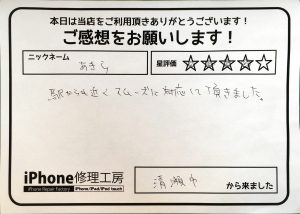 本日は当店をご利用頂きありがとうございます！
ご感想をお願いします！
ニックネーム
あきら
星評価
☆☆☆☆☆
駅からも近くスムーズに対応して頂きました。
iPhone修理工房
iPhone Repair Factory
iPhone/iPad/iPod touch
清瀬市
から来ました